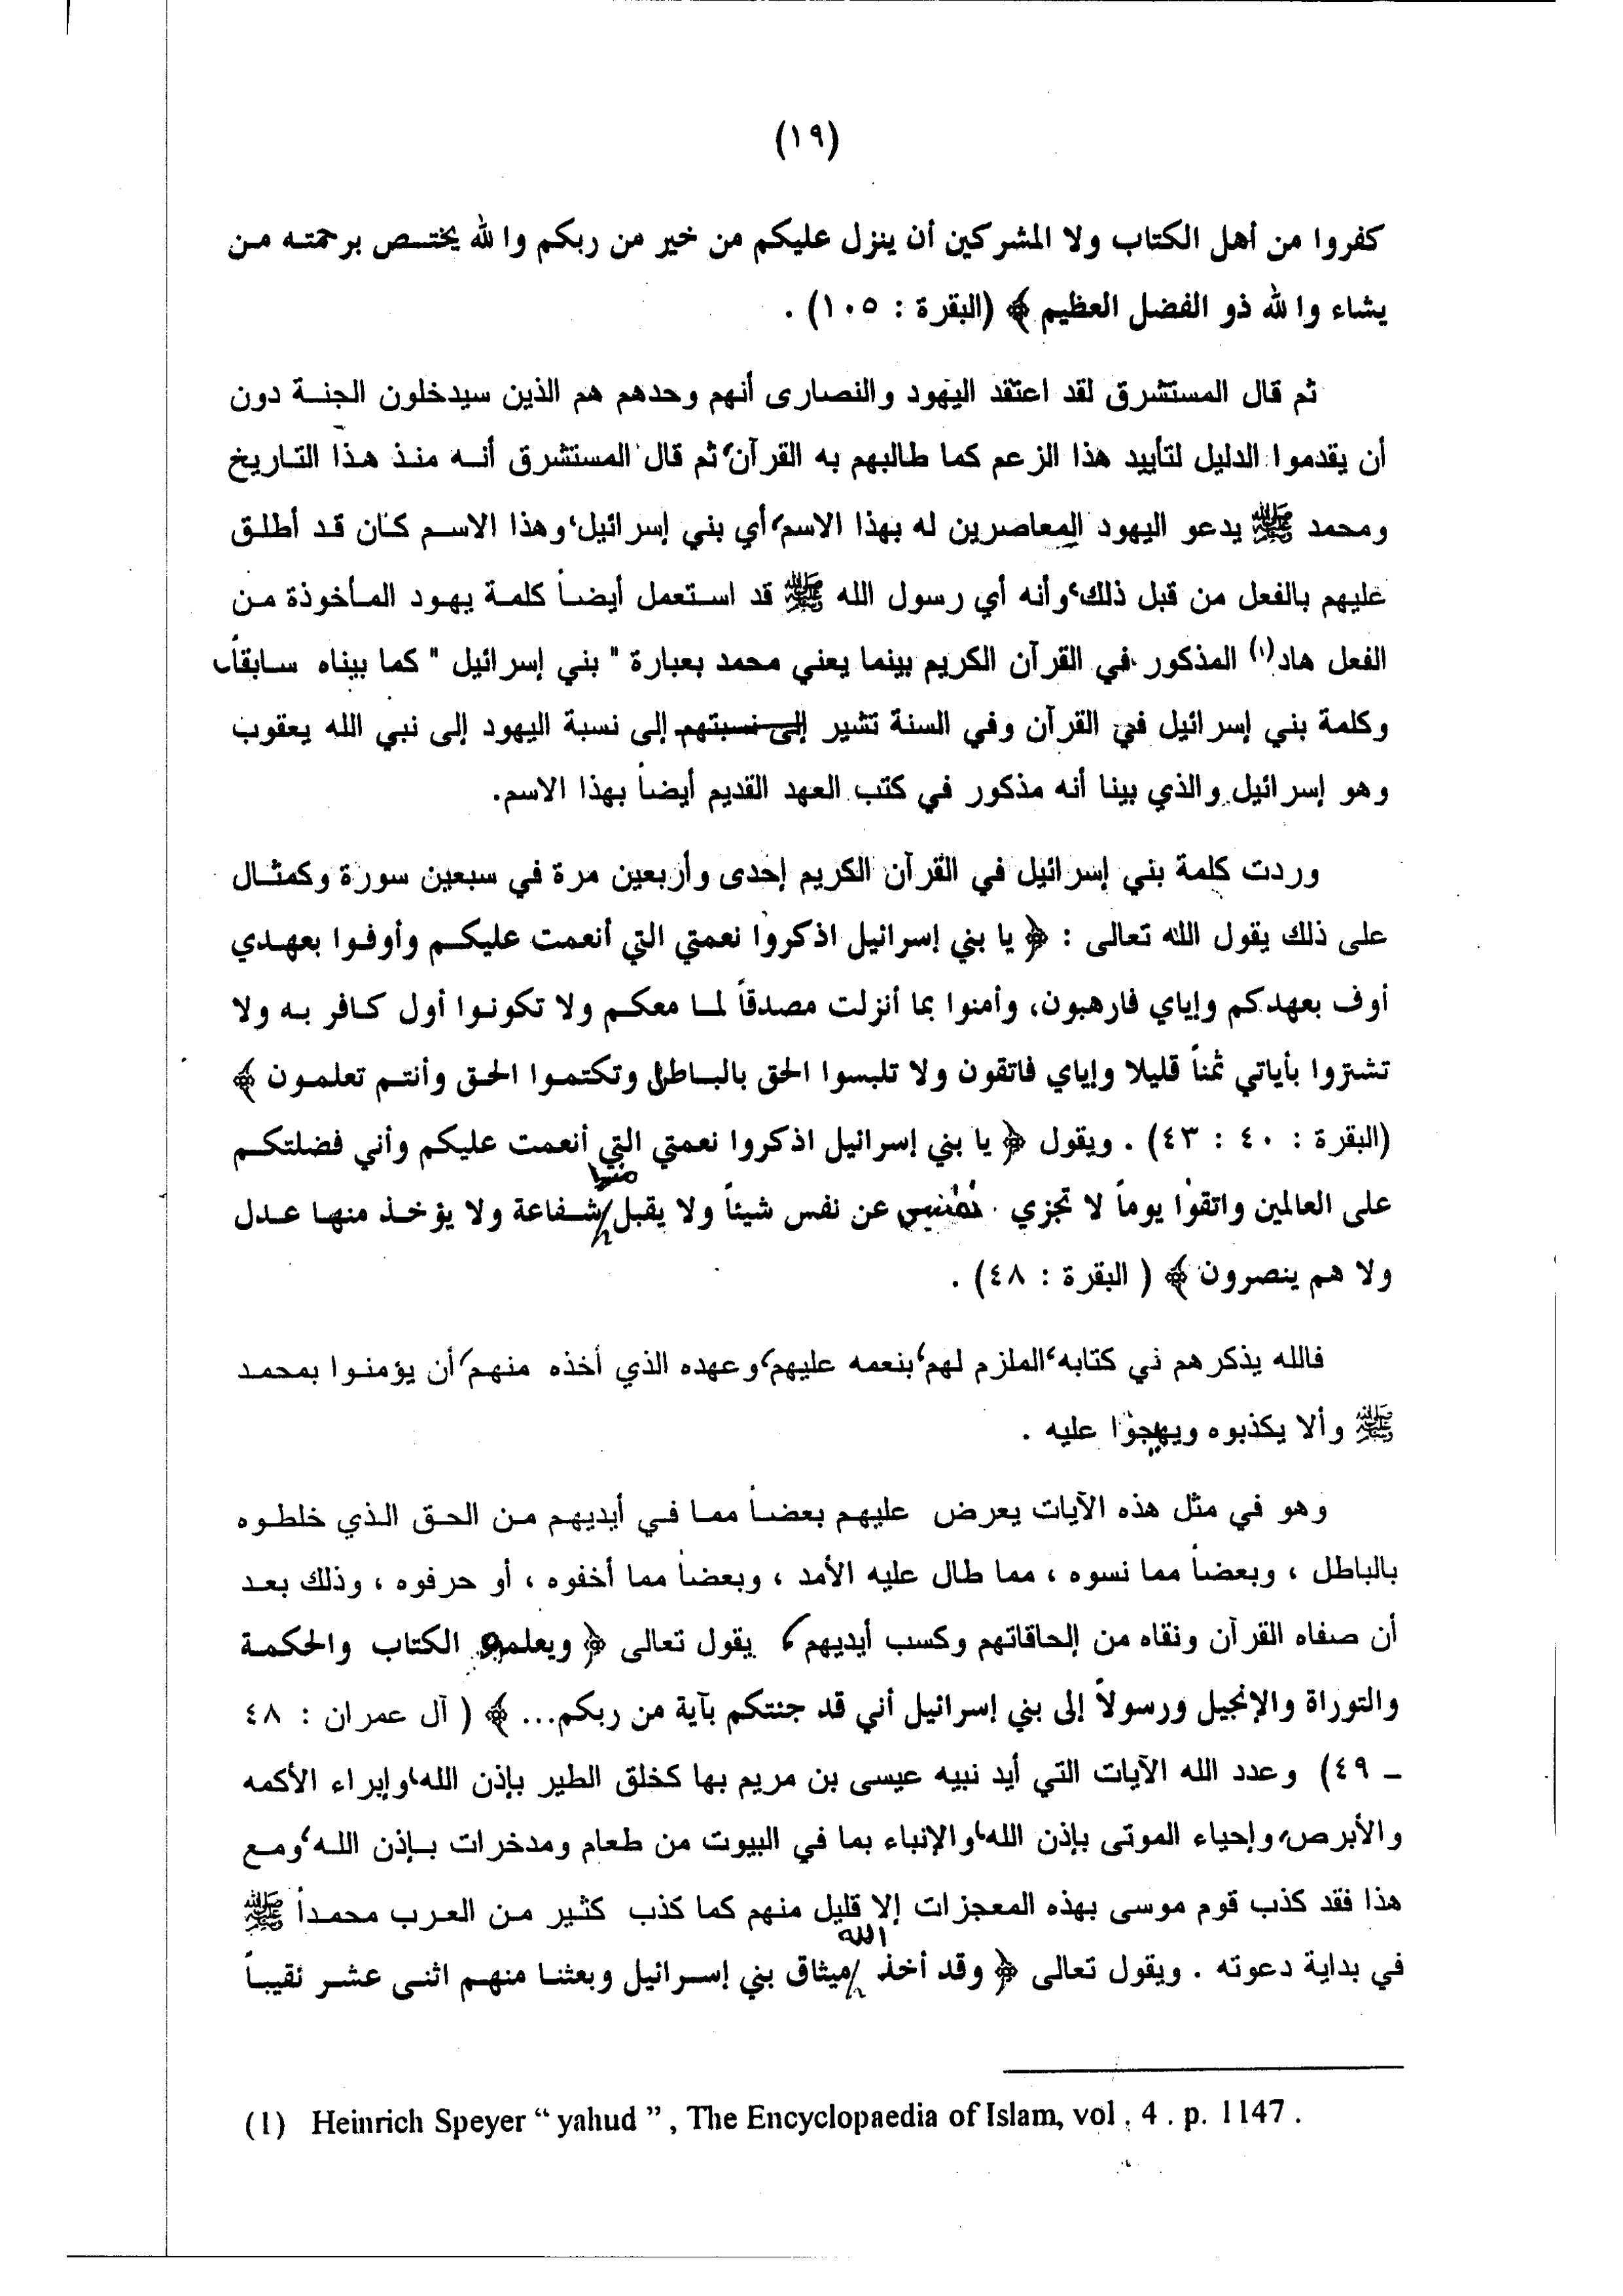 (١٩)
كفروا من أهل الكتاب ولا المشركين أن ينزل عليكم من خير من ربكم والله يختص برحمته من
يشاء والله ذو الفضل العظيم ﴾ (البقرة : ١٠٥) .
ثم قال المستشرق لقد اعتقد اليهود والنصارى أنهم وحدهم هم الذين سيدخلون الجنة دون
أن يقدموا الدليل لتأييد هذا الزعم كما طالبهم به القرآن، ثم قال المستشرق أنه منذ هذا التاريخ
ومحمد ﷺ يدعو اليهود المعاصرين له بهذا الاسم، أي بني إسرائيل، وهذا الاسم كان قد أطلق
عليهم بالفعل من قبل ذلك، وأنه أي رسول الله ﷺ قد استعمل أيضاً كلمة يهود المأخوذة من
الفعل هاد(١) المذكور في القرآن الكريم بينما يعني محمد بعبارة " بني إسرائيل " كما بيناه سابقاً،
وكلمة بني إسرائيل في القرآن وفي السنة تشير إلى نسبتهم إلى نسبة اليهود إلى نبي الله يعقوب
وهو إسرائيل والذي بينا أنه مذكور في كتب العهد القديم أيضاً بهذا الاسم.
وردت كلمة بني إسرائيل في القرآن الكريم إحدى وأربعين مرة في سبعين سورة وكمثال
على ذلك يقول الله تعالى : ﴿ يا بني إسرائيل اذكروا نعمتي التي أنعمت عليكم وأوفوا بعهدي
أوف بعهدكم وإياي فارهبون، وأمنوا بما أنزلت مصدقاً لما معكم ولا تكونوا أول كافر به ولا
تشتروا بأياتي ثمناً قليلا وإياي فاتقون ولا تلبسوا الحق بالباطل وتكتموا الحق وأنتم تعلمون ﴾
(البقرة : ٤٠ : ٤٣) . ويقول ﴿ يا بني إسرائيل اذكروا نعمتي التي أنعمت عليكم وأني فضلتكم
على العالمين واتقوا يوماً لا تجزي نفس عن نفس شيئاً ولا يقبل منها شفاعة ولا يؤخذ منها عدل
ولا هم ينصرون ﴾ ( البقرة : ٤٨) .
فالله يذكرهم في كتابه، الملزم لهم، بنعمه عليهم، وعهده الذي أخذه منهم، أن يؤمنوا بمحمد
ﷺ وألا يكذبوه ويهيجوا عليه .
وهو في مثل هذه الآيات يعرض عليهم بعضاً مما في أيديهم من الحق الذي خلطوه
بالباطل ، وبعضاً مما نسوه ، مما طال عليه الأمد ، وبعضاً مما أخفوه ، أو حرفوه ، وذلك بعد
أن صفاه القرآن ونقاه من إلحاقاتهم وكسب أيديهم، يقول تعالى ﴿ ويعلمه الكتاب والحكمة
والتوراة والإنجيل ورسولاً إلى بني إسرائيل أني قد جئتكم بآية من ربكم... ﴾ ( آل عمران : ٤٨
ـ ٤٩) وعدد الله الآيات التي أيد نبيه عيسى بن مريم بها كخلق الطير بإذن الله، وإبراء الأكمه
والأبرص، وإحياء الموتى بإذن الله، والإنباء بما في البيوت من طعام ومدخرات بإذن الله، ومع
هذا فقد كذب قوم موسى بهذه المعجزات إلا قليل منهم كما كذب كثير من العرب محمداً ﷺ
في بداية دعوته . ويقول تعالى ﴿ وقد أخذ الله ميثاق بني إسرائيل وبعثنا منهم اثنى عشر نقيباً
(1) Heinrich Speyer “ yahud ” , The Encyclopaedia of Islam, vol . 4 . p. 1147 .